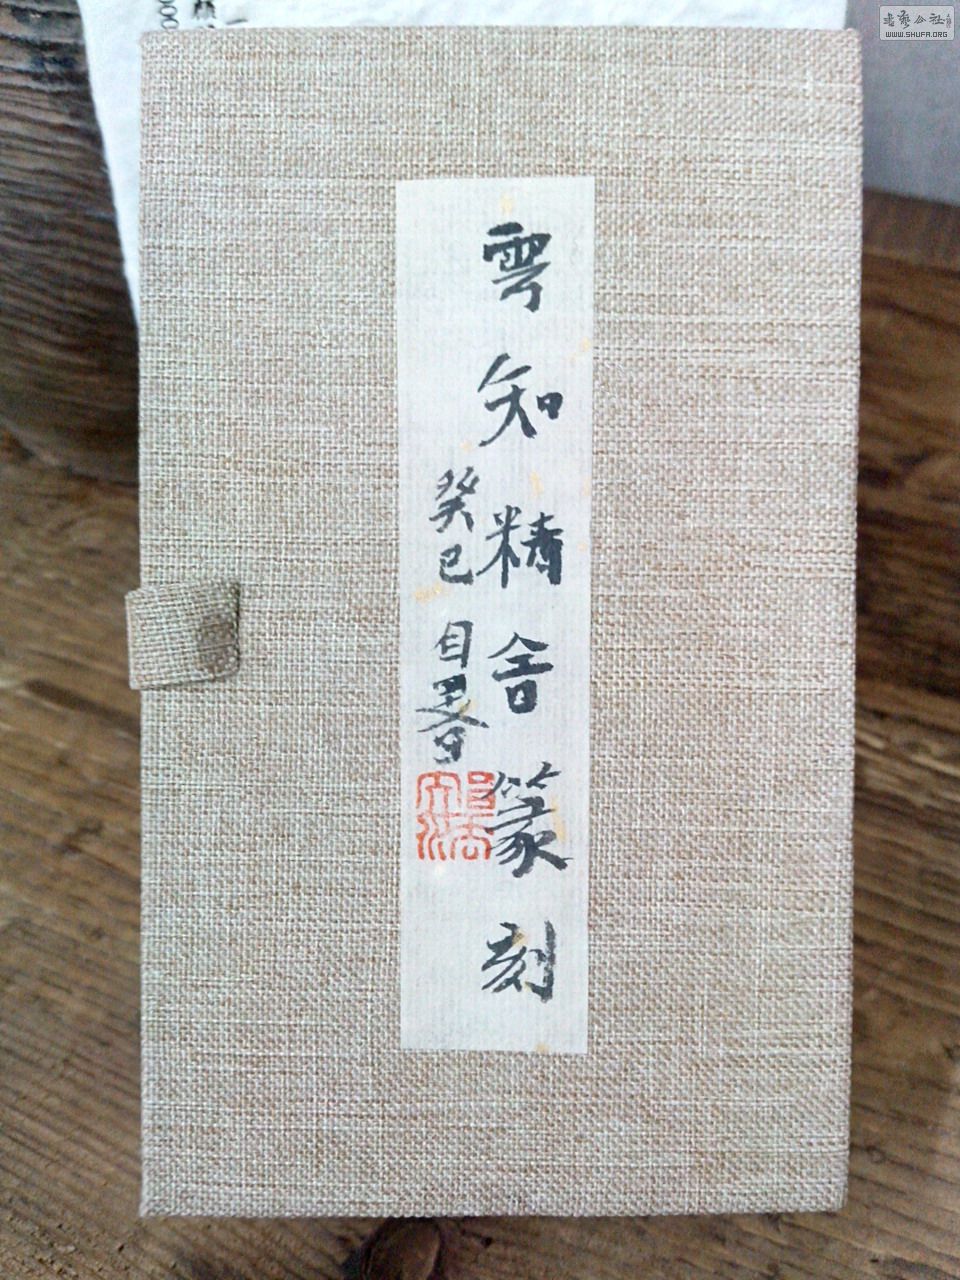 雲知精舍篆刻
癸巳自署
書藝公社
WWW.SHUFA.ORG